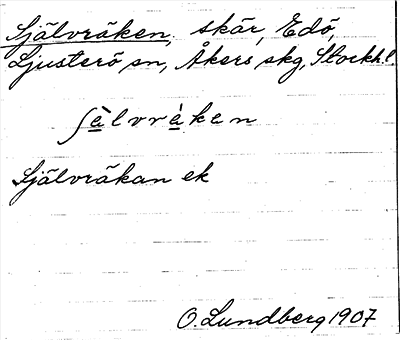 Självräken, skär, Edö,
Ljusterö sn, Åkers skg, Stockh.l.
ʃä̀lvrä̀ken
Självräkan ek
O. Lundberg 1907